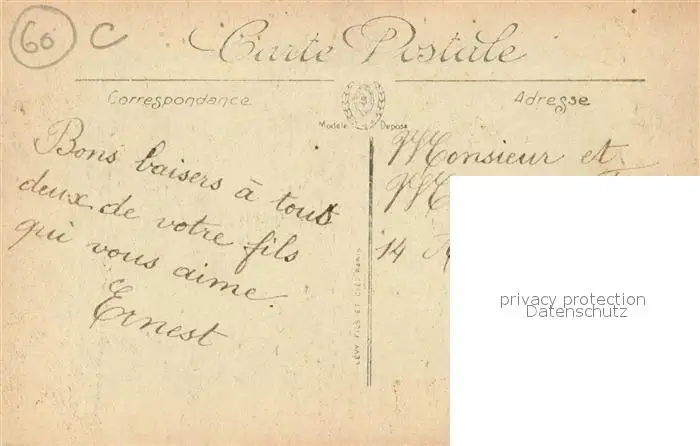 60 C
Carte Postale
Correspondance
Adresse
Modèle Déposé
Bons baisers à tous
deux de votre fils
qui vous aime.
Ernest
LÉVY FILS ET CIE, PARIS
Monsieur et
14
privacy protection
Datenschutz